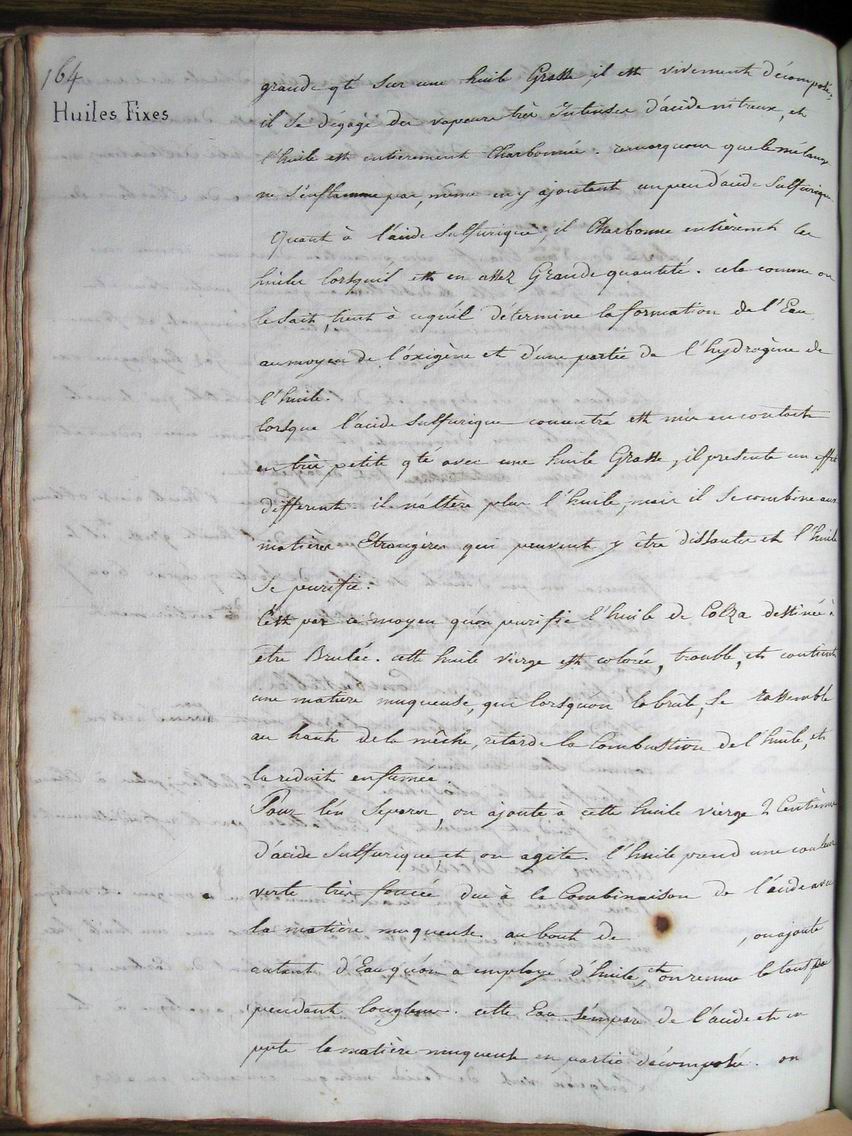 164
Huiles Fixes
grande qté sur une huile Grasse, il est vivement décomposé,
il se dégage des vapeurs très Intenses d'acide nitreux, et
l'huile est entièrement Charbonnée. remarquons que le mélange
ne s'enflamme pas, même en y ajoutant un peu d'acide Sulfurique
Quant à l'acide Sulfurique, il Charbonne entièrement les
huiles lorsquil est en assez Grande quantité. cela comme on
le sait, tient à ce qu'il détermine la formation de l'Eau
au moyen de l'oxigène et d'une partie de l'hydrogène de
l'huile.
lorsque l'acide Sulfurique concentré est mis en contact
en très petite qté avec une huile Grasse, il présente un effet
différent il n'altère plus l'huile, mais il se combine aux
matières Etrangères qui peuvent y être dissoutes et l'huile
se purifie.
C'est par ce moyen qu'on purifie l'huile de Colza destinée à
être Brulée. cette huile vierge est colorée, trouble, et contient
une matière muqueuse, qui lorsquon la brûle, se rassemble
au haut de la mêche, retarde la Combustion de l'huile, et
la reduit en fumée
Pour l'en Separer, on ajoute à cette huile vierge 2 Centièmes
d'acide Sulfurique et on agite. l'huile prend une couleur
verte très foncée due à la Combinaison de l'acide avec
la matière muqueuse. au bout de , on ajoute
autant d'Eau qu'on a employé d'huile, et on remue le tout
pendant longtems. cette Eau s'empare de l'acide et en
ppte la matière muqueuse en partie décomposée. on